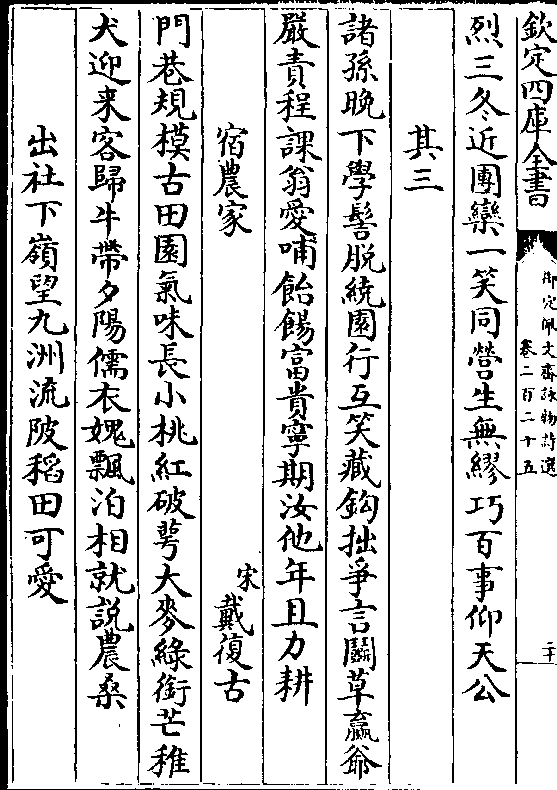 欽定四庫全書
御定佩文齋詠物詩選
卷二百二十五
二十
烈三冬近團欒一笑同營生無繆巧百事仰天公
其三
諸孫晚下學髻脫繞園行互笑藏鈎拙爭言鬭草贏爺
嚴責程課翁愛哺飴餳富貴寧期汝他年且力耕
宿農家
宋戴復古
門巷規模古田園氣味長小桃紅破萼大麥綠銜芒稚
犬迎来客歸牛帶夕陽儒衣媿飄泊相就說農桑
出社下嶺望九洲流陂稻田可愛